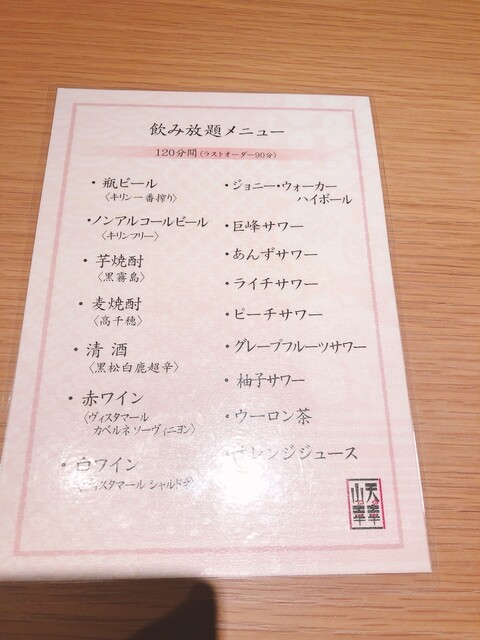 飲み放題メニュー
120分間（ラストオーダー90分）
・瓶ビール
〈キリン一番搾り〉
・ノンアルコールビール
〈キリンフリー〉
・芋焼酎
〈黒霧島〉
・麦焼酎
〈高千穂〉
・清 酒
〈黒松白鹿超辛〉
・赤ワイン
〈ヴィスタマール
カベルネ ソーヴィニヨン〉
・白ワイン
〈ヴィスタマール シャルドネ〉
・ジョニー・ウォーカー
ハイボール
・巨峰サワー
・あんずサワー
・ライチサワー
・ピーチサワー
・グレープフルーツサワー
・柚子サワー
・ウーロン茶
・オレンジジュース
天幸
山幸